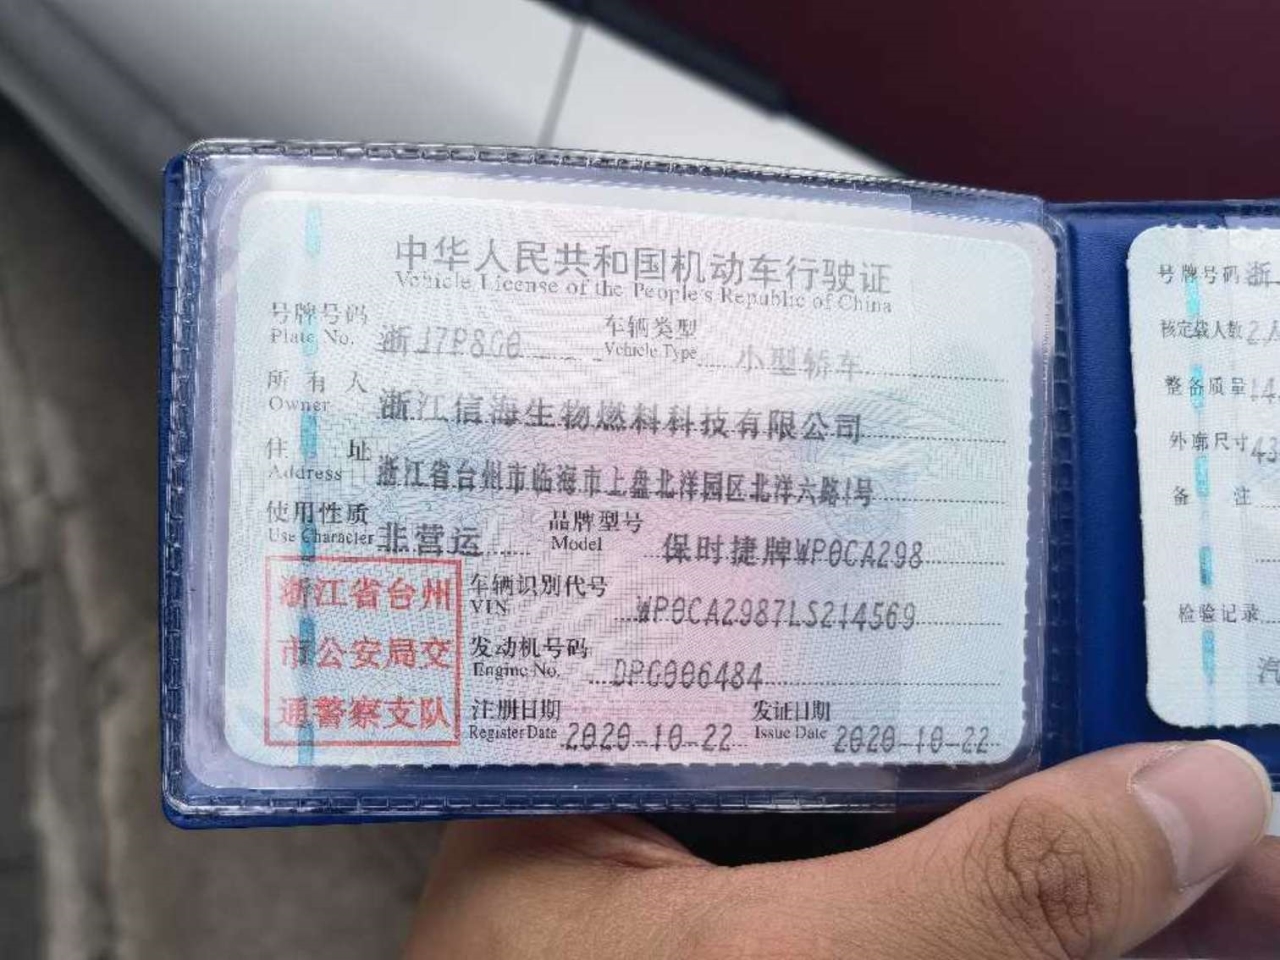 中华人民共和国机动车行驶证
Vehicle License of the People's Republic of China
号牌号码 浙J7P8G0 车辆类型 小型轿车
Plate No. Vehicle Type
所有人 浙江信海生物燃料科技有限公司
Owner
住址 浙江省台州市临海市上盘北洋园区北洋六路1号
Address
使用性质 非营运 品牌型号 保时捷牌WP0CA298
Use Character Model
浙江省台州
市公安局交
通警察支队
车辆识别代号 WP0CA2987LS214569
VIN
发动机号码 DPG006484
Engine No.
注册日期 2020-10-22 发证日期 2020-10-22
Register Date Issue Date
号牌号码 浙
核定载人数 2人
整备质量 14
外廓尺寸 43
备注
检验记录
汽